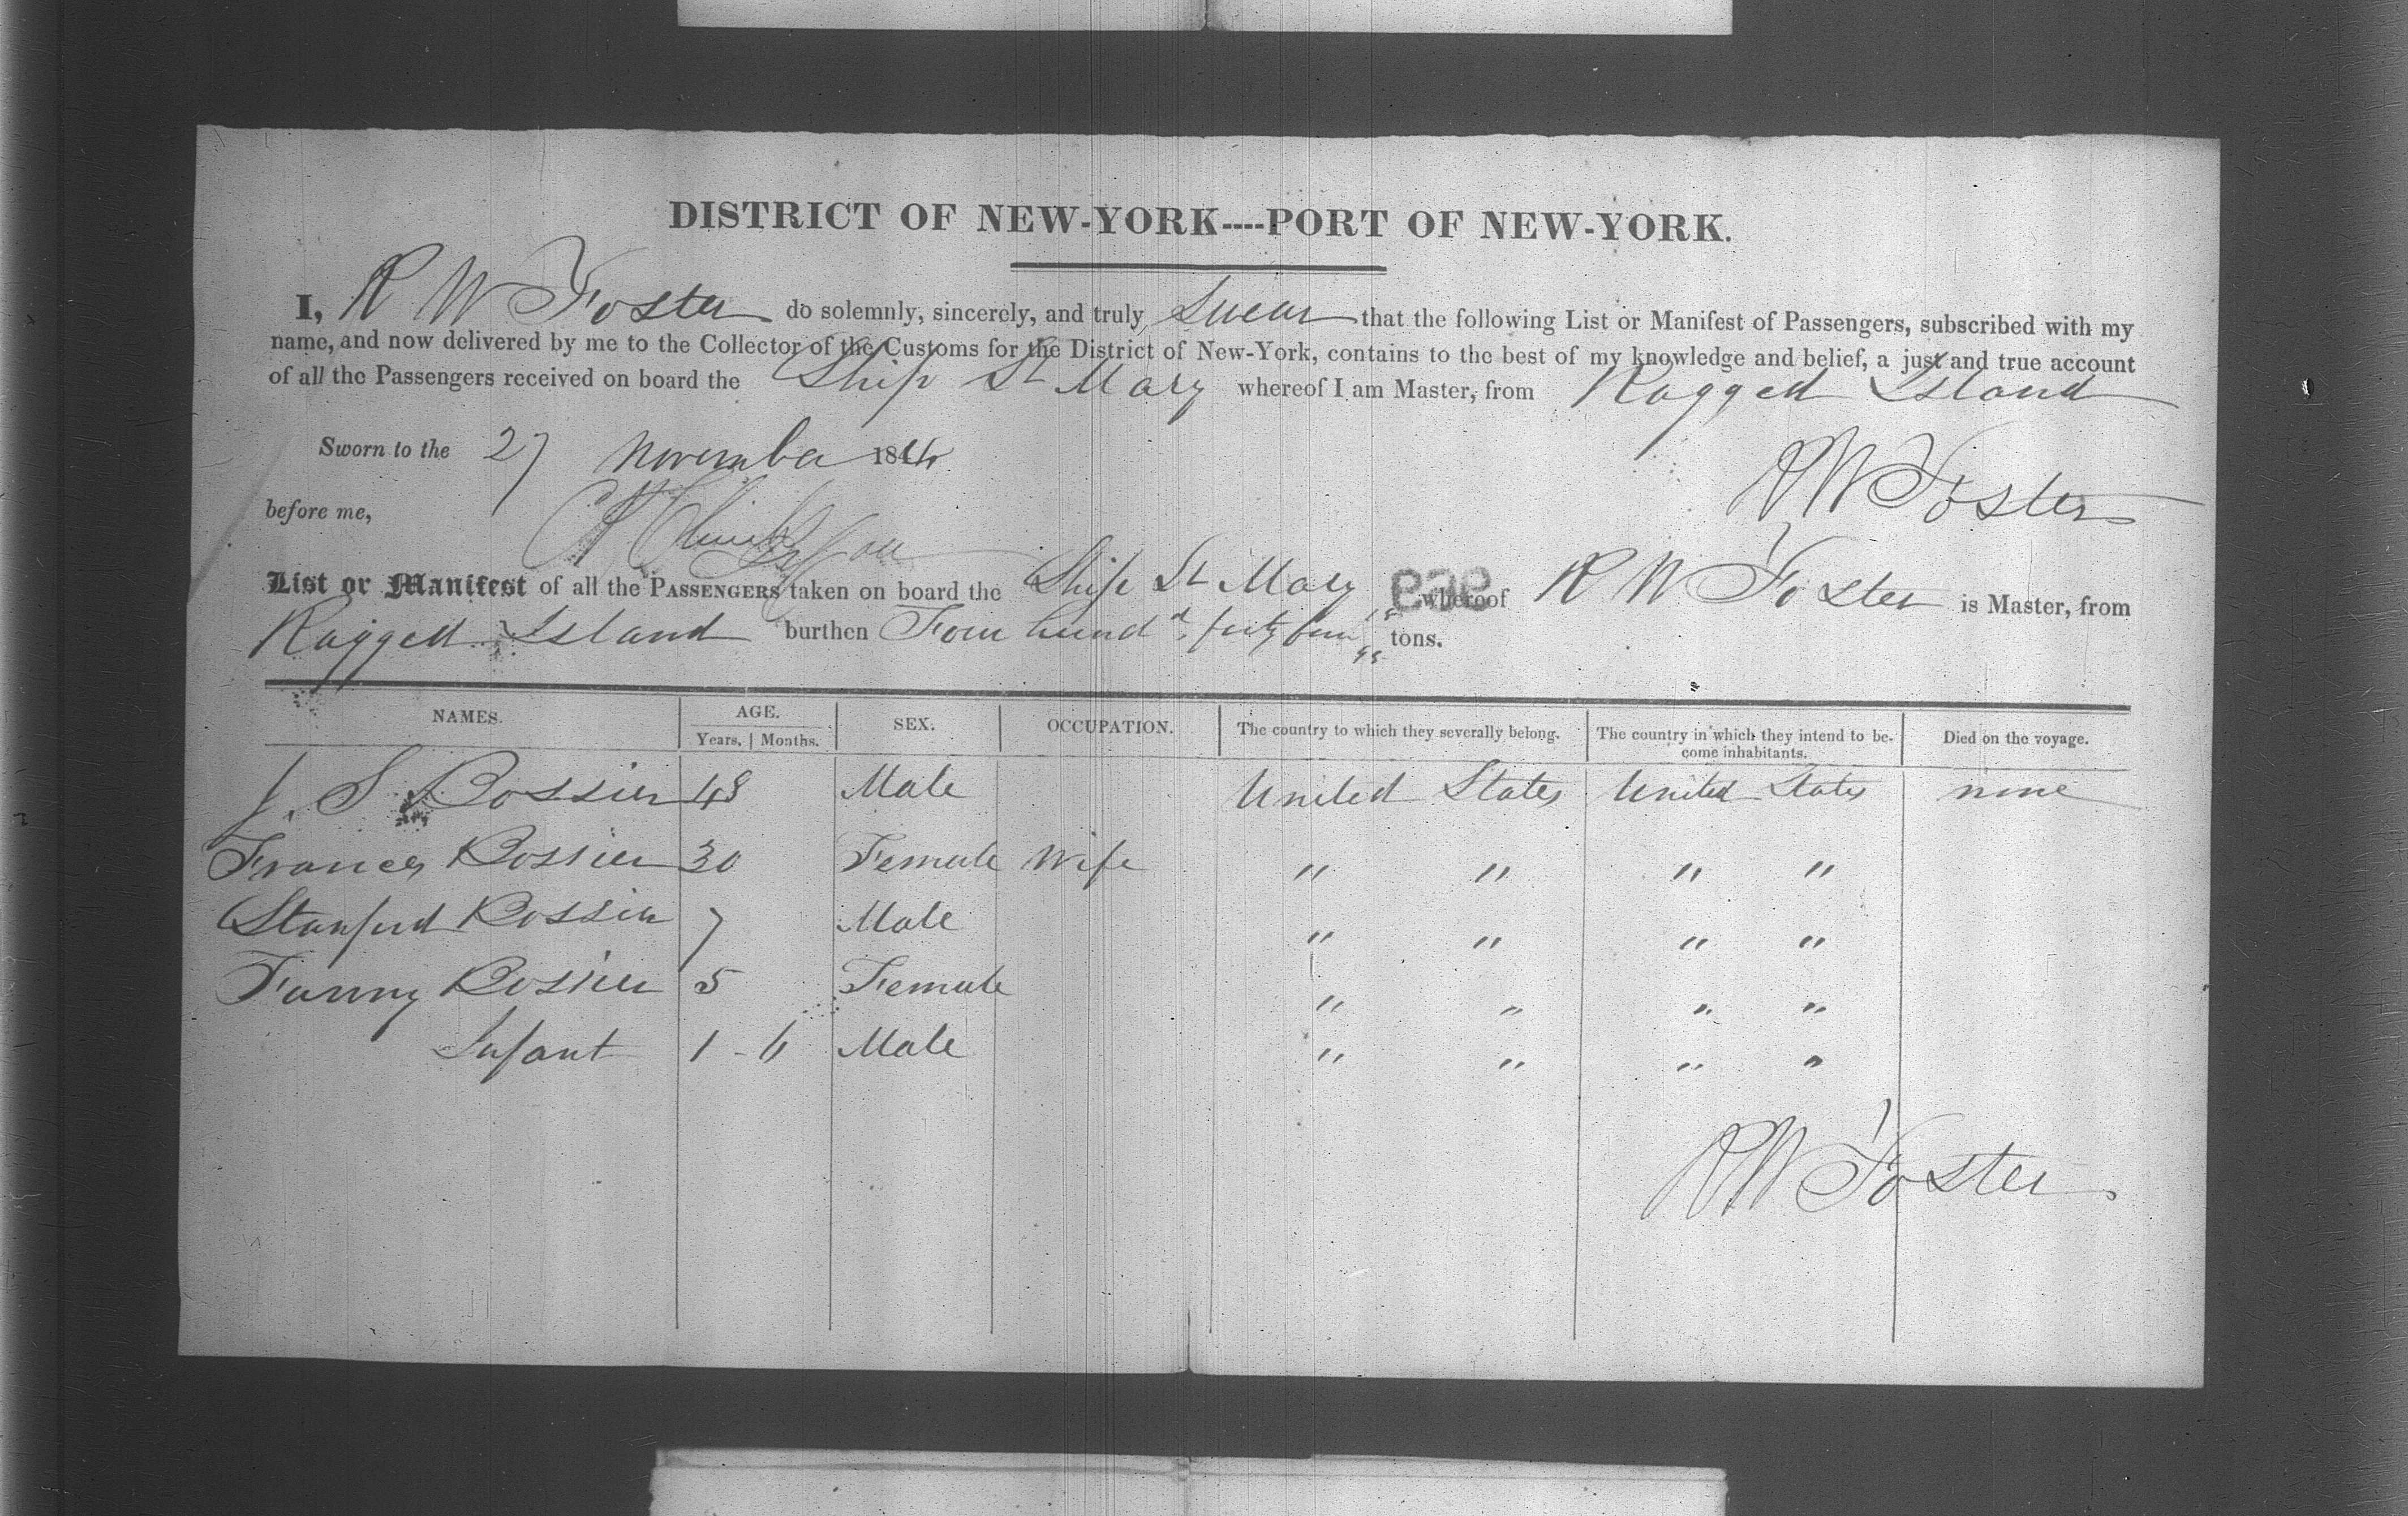 DISTRICT OF NEW-YORK----PORT OF NEW-YORK.
I, R W Foster do solemnly, sincerely, and truly swear that the following List or Manifest of Passengers, subscribed with my
name, and now delivered by me to the Collector of the Customs for the District of New-York, contains to the best of my knowledge and belief, a just and true account
of all the Passengers received on board the Ship St Mary whereof I am Master, from Ragged Island
Sworn to the 27 November 1844
R W Foster
before me,
List or Manifest of all the PASSENGERS taken on board the Ship St Mary 969 whereof R W Foster is Master, from
Ragged Island burthen Four hundd forty four tons.
NAMES. AGE. SEX. OCCUPATION. The country to which they severally belong. The country in which they intend to be- Died on the voyage.
Years. Months. come inhabitants.
J. S Bossier 48 Male United States United States none
Frances Bossier 30 Female Wife " " " "
Stanford Bossier 7 Male " " " "
Fanny Bossier 5 Female " " " "
Infant 1 - 6 Male " " " "
R W Foster